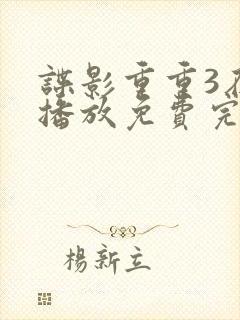 諜影重重3在
播放免費完
楊新立